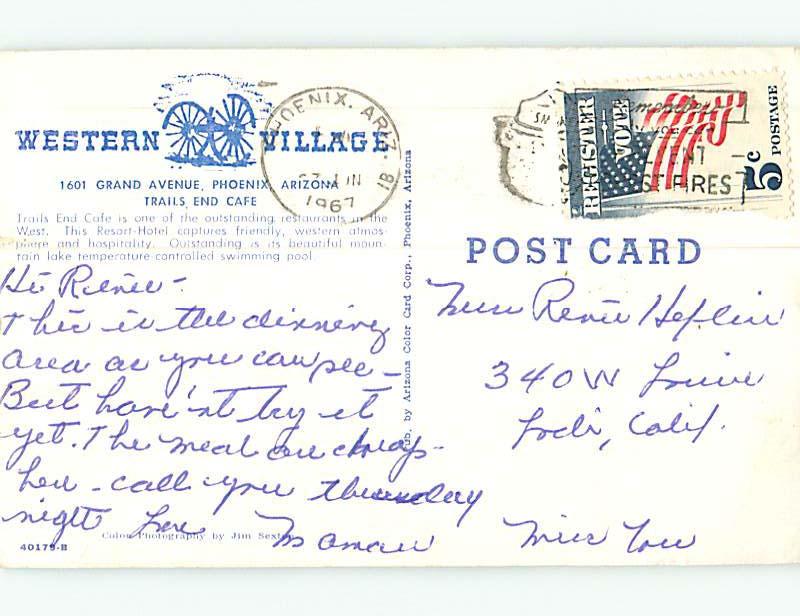 WESTERN VILLAGE
1601 GRAND AVENUE, PHOENIX, ARIZONA
TRAILS END CAFE
Trails End Cafe is one of the outstanding restaurants in the
West. This Resort-Hotel captures friendly, western atmos-
phere and hospitality. Outstanding is its beautiful moun-
tain lake temperature-controlled swimming pool.
Hi Renee -
This is the dinning
area as you can see -
But have'nt try it
yet. The meal are cheap
here - call you thursday
night Love
Maman
Miss You
Color Photography by Jim Sexton
40179-B
Pub. by Arizona Color Card Corp., Phoenix, Arizona
PHOENIX, ARIZ.
JUN
1967
REGISTER
VOTE
5c
POSTAGE
FIRES
POST CARD
Miss Renee Heflin
340 W
Lodi, Calif.